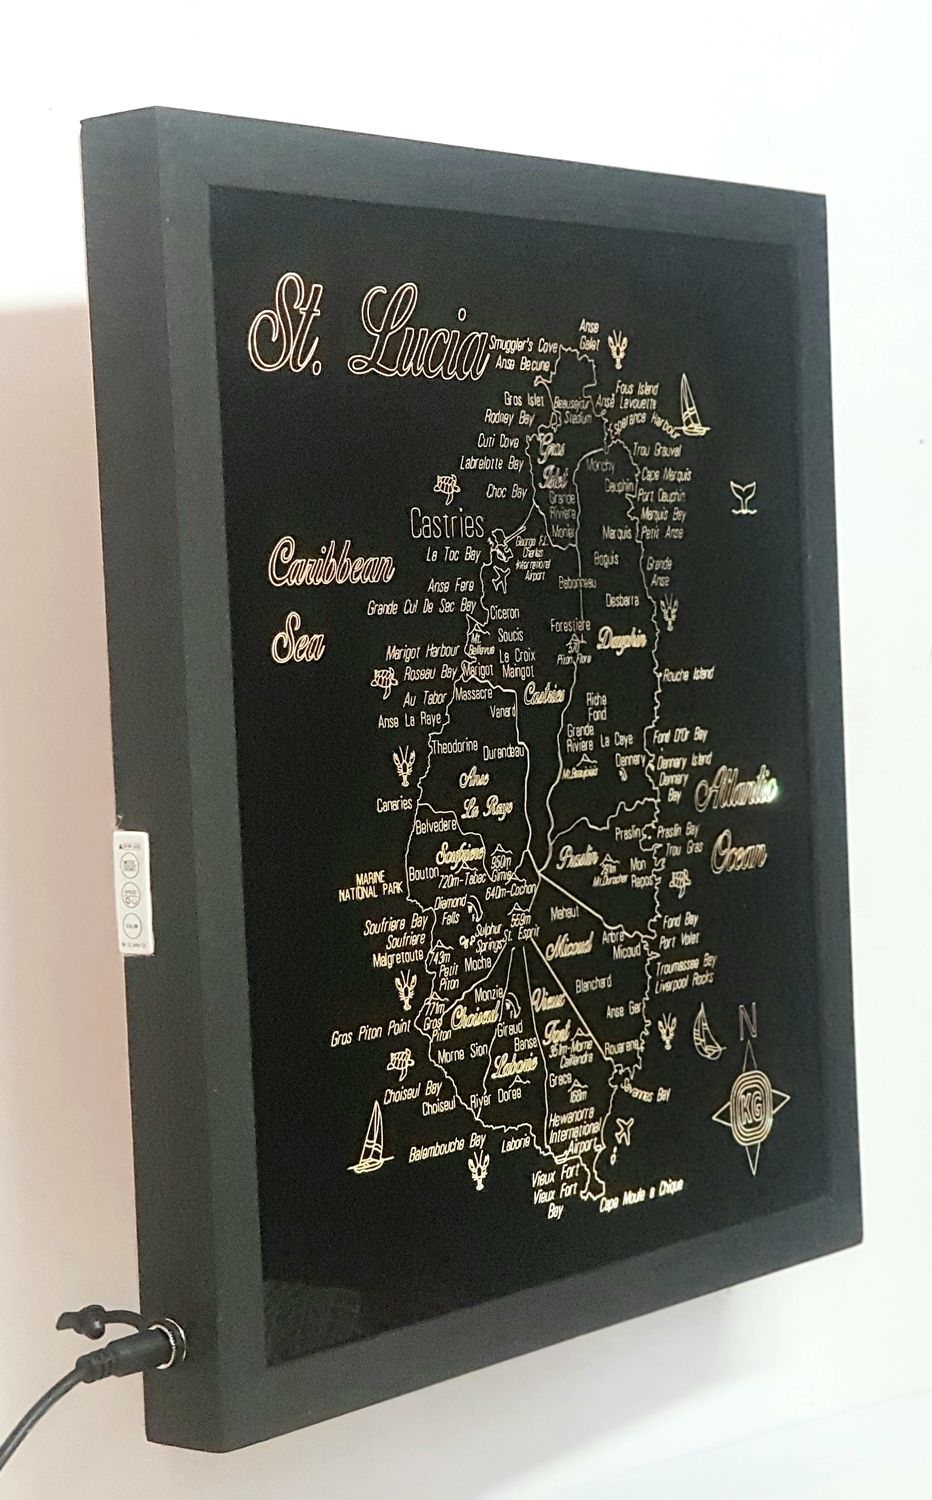 St. Lucia
Smuggler's Cove
Anse Becune
Anse
Galet
Gros Islet
Rodney Bay
Beausejour
Stadium
Fous Island
Anse Lavouette
Esperance Harbour
Cuti Cove
Labrelotte Bay
Choc Bay
Gros
Islet
Monchy
Trou Grauval
Dauphin
Cape Marquis
Port Dauphin
Marquis Bay
Petit Anse
Grande
Riviere
Monier
Marquis
Castries
La Toc Bay
George F.L.
Charles
International
Airport
Boguis
Grande
Anse
Caribbean
Sea
Anse Fere
Grande Cul De Sac Bay
Ciceron
Babonneau
Desbarra
Mt.
Bellevue
Soucis
Forestiere
Dauphin
Marigot Harbour
La Croix
Maingot
Piton Flore
Roseau Bay
Marigot
Rouche Island
Au Tabor
Massacre
Castries
Anse La Raye
Vanard
Riche
Fond
Theodorine
Durandeau
Grande
Riviere
La Caye
Fond D'Or Bay
Anse
La Raye
Dennery
Dennery Island
Dennery
Bay
Atlantic
Ocean
Canaries
Belvedere
Praslin
Praslin Bay
Trou Gras
Soufriere
950m
Praslin
Mon
Repos
MARINE
NATIONAL PARK
Bouton
720m-Tabac
Gimie
640m-Cochon
Diamond
Falls
559m
St. Esprit
Mahaut
Fond Bay
Soufriere Bay
Soufriere
Malgretoute
Sulphur
Springs
Micoud
Arbre
Micoud
Port Volet
743m
Petit
Piton
Moche
Troumassee Bay
Liverpool Rocks
Blanchard
Monzie
Vieux
Fort
Anse Ger
Gros Piton Point
771m
Gros
Piton
Choiseul
Giraud
Banse
N
Morne Sion
Laborie
361m-Morne
Caillandre
Rouarene
Choiseul Bay
Choiseul
River Doree
Grace
168m
Savannes Bay
KG
Hewanorra
International
Airport
Balembouche Bay
Laborie
Vieux Fort
Vieux Fort
Bay
Cape Moule a Chique